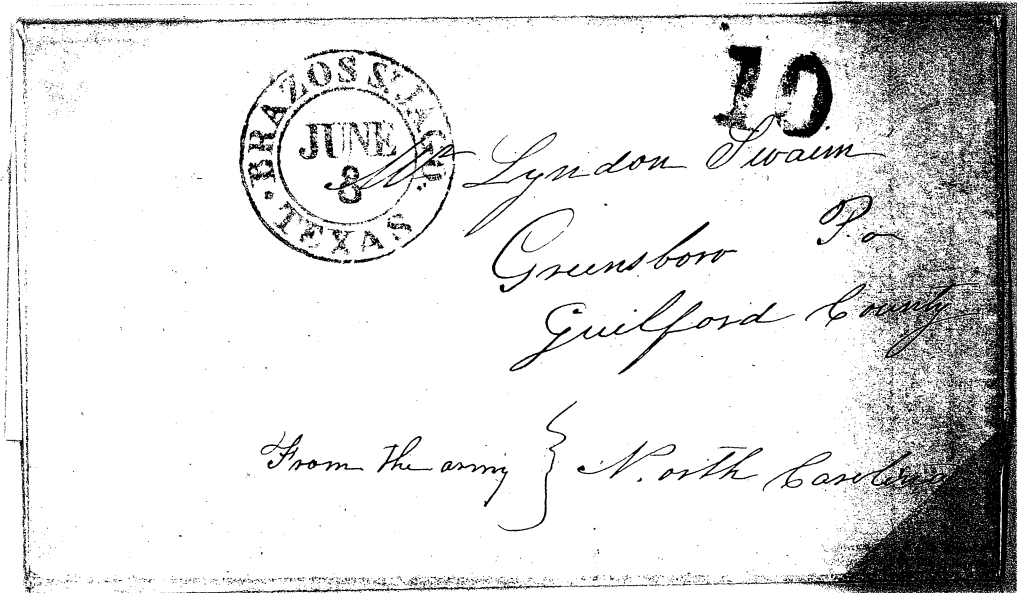 10
BRAZOS St. IAGO.
JUNE
8
TEXAS
Mr Lyndon Swaim
Greensboro P.o
Guilford County
From the army } North Carolina